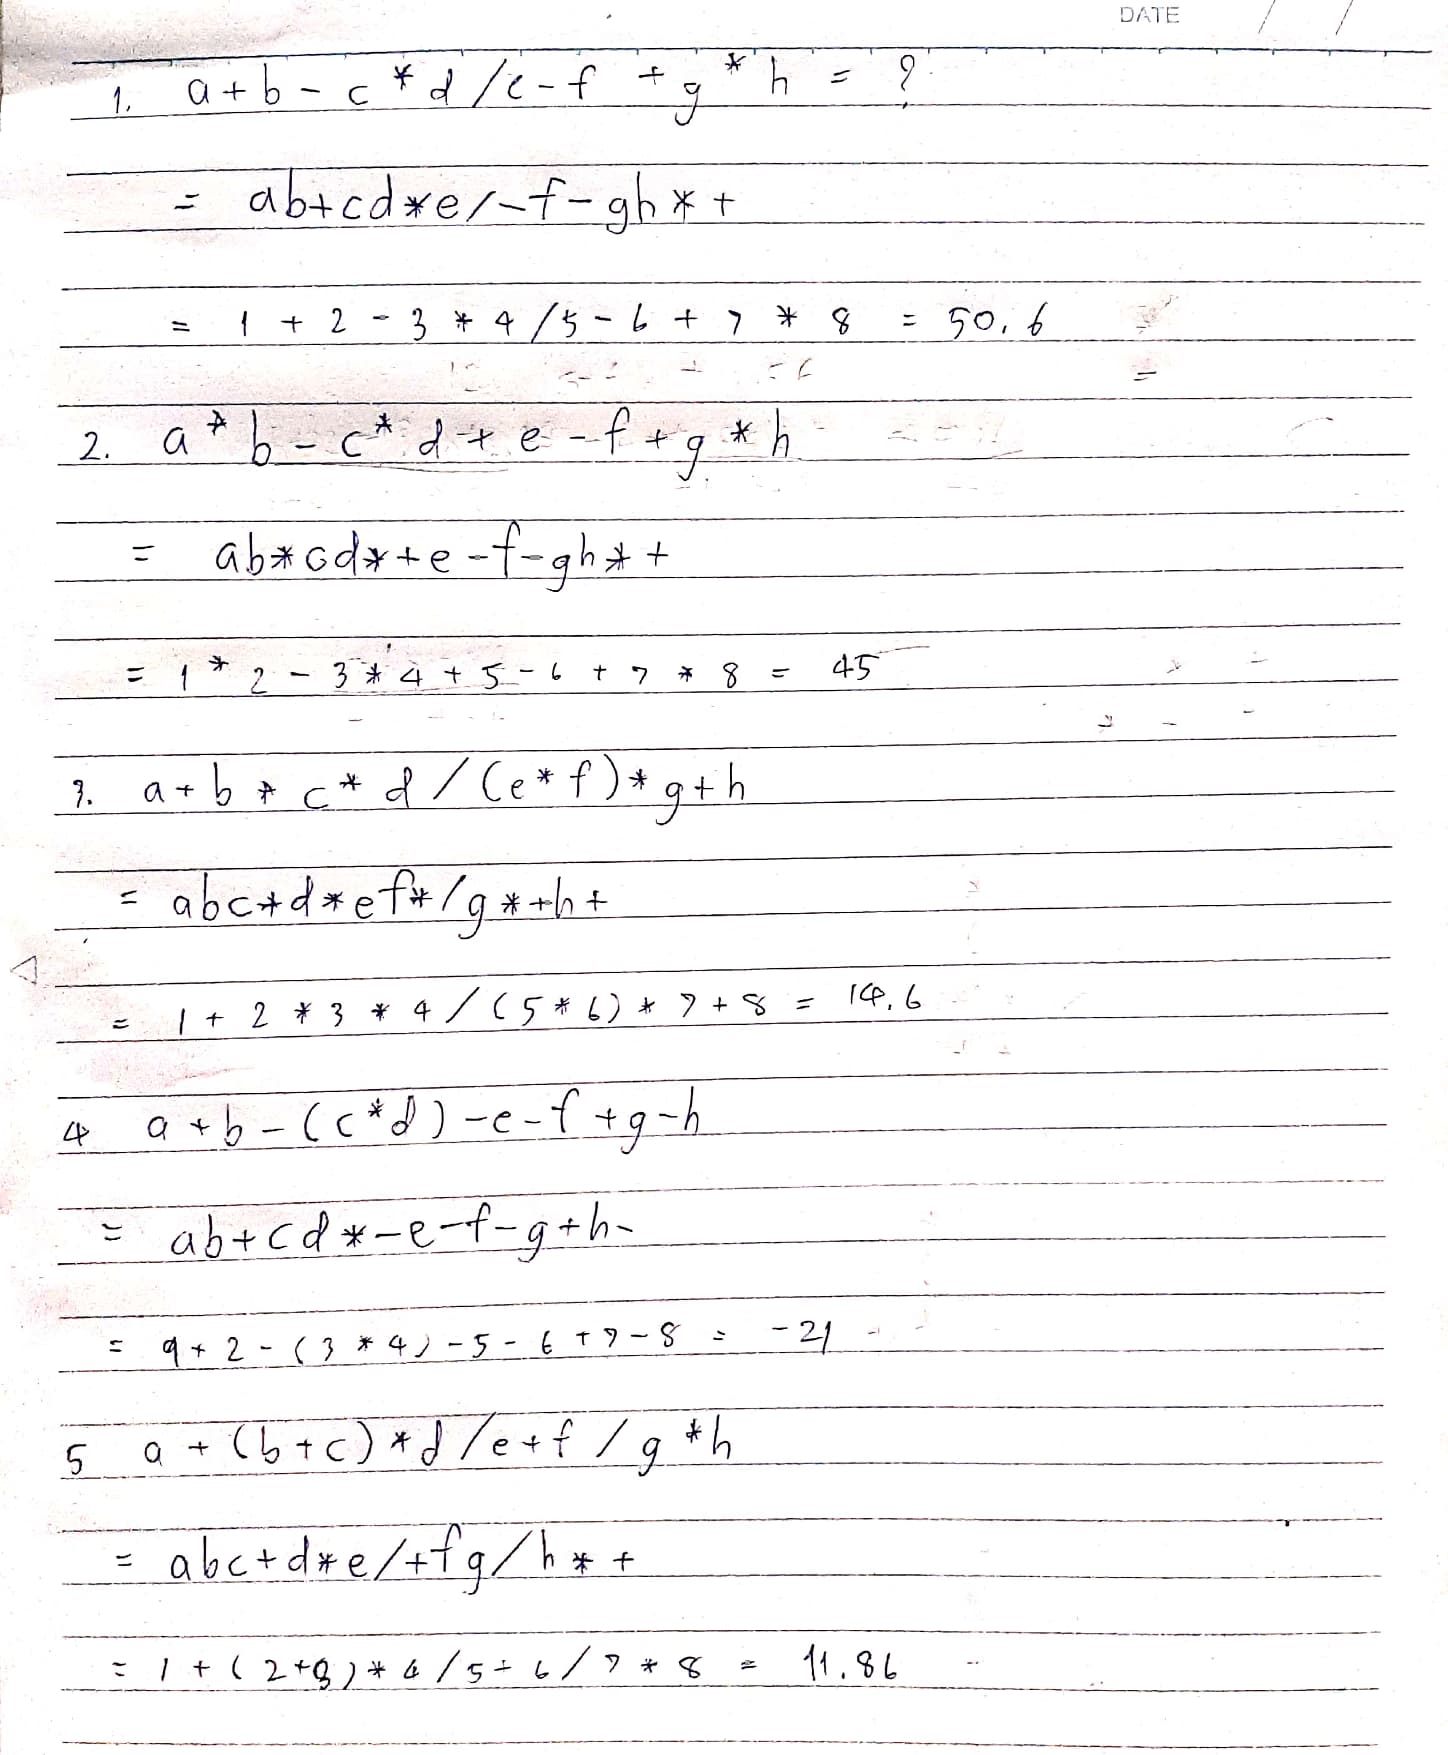 DATE / /
1. a + b - c * d / e - f + g * h = ?
= ab+cd*e/-f-gh*+
= 1 + 2 - 3 * 4 / 5 - 6 + 7 * 8 = 50,6
2. a * b - c * d + e - f + g * h
= ab*cd*+e-f-gh*+
= 1 * 2 - 3 * 4 + 5 - 6 + 7 * 8 = 45
3. a + b * c * d / (e * f) * g + h
= abc*d*ef*/g*+h+
= 1 + 2 * 3 * 4 / (5 * 6) * 7 + 8 = 14,6
4 a + b - (c * d) - e - f + g - h
= ab+cd*-e-f-g+h-
= 9 + 2 - (3 * 4) - 5 - 6 + 7 - 8 = -21
5 a + (b + c) * d / e + f / g * h
= abc+d*e/+fg/h*+
= 1 + (2+3) * 4 / 5 + 6 / 7 * 8 = 11.86